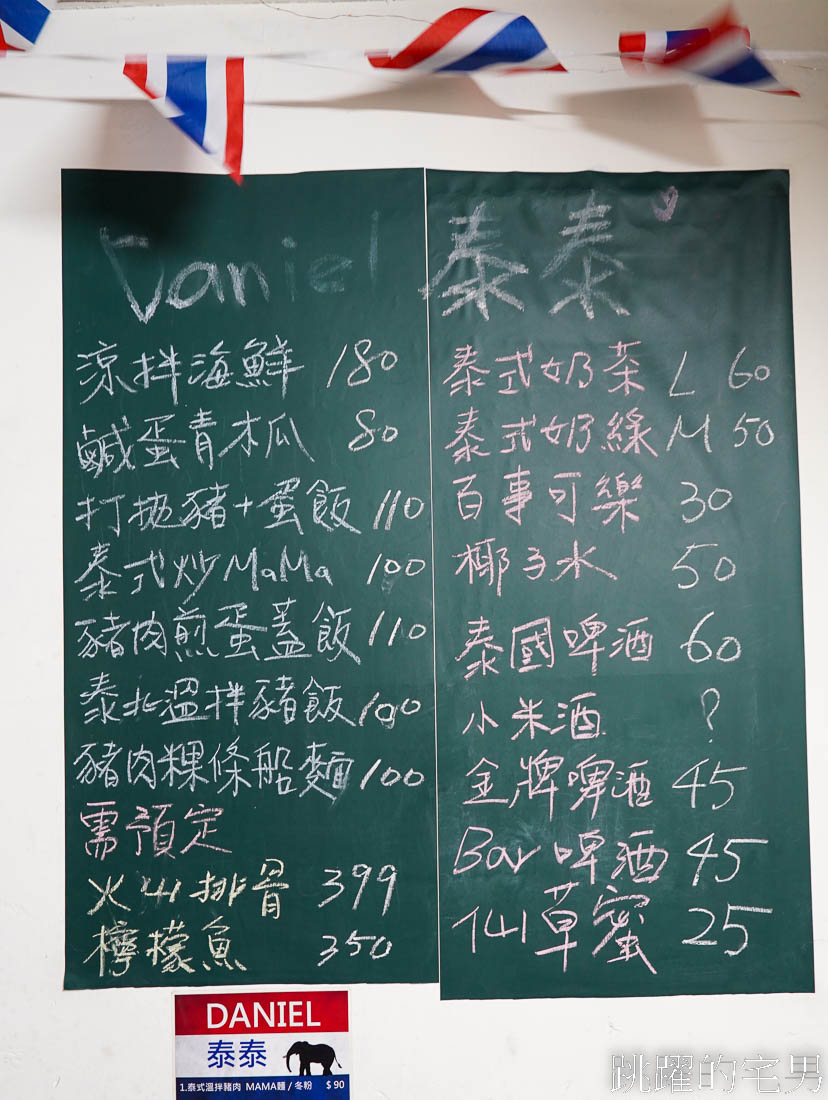 Daniel 泰泰
涼拌海鮮 180
鹹蛋青木瓜 80
打拋豬+蛋飯 110
泰式炒MaMa 100
豬肉煎蛋蓋飯 110
泰北溫拌豬飯 100
豬肉粿條船麵 100
需預定
火山排骨 399
檸檬魚 350
泰式奶茶 L 60
泰式奶綠 M 50
百事可樂 30
椰子水 50
泰國啤酒 60
小米酒 ?
金牌啤酒 45
Bar啤酒 45
仙草蜜 25
DANIEL
泰泰
1.泰式溫拌豬肉 MAMA麵/冬粉 $90
跳躍的宅男